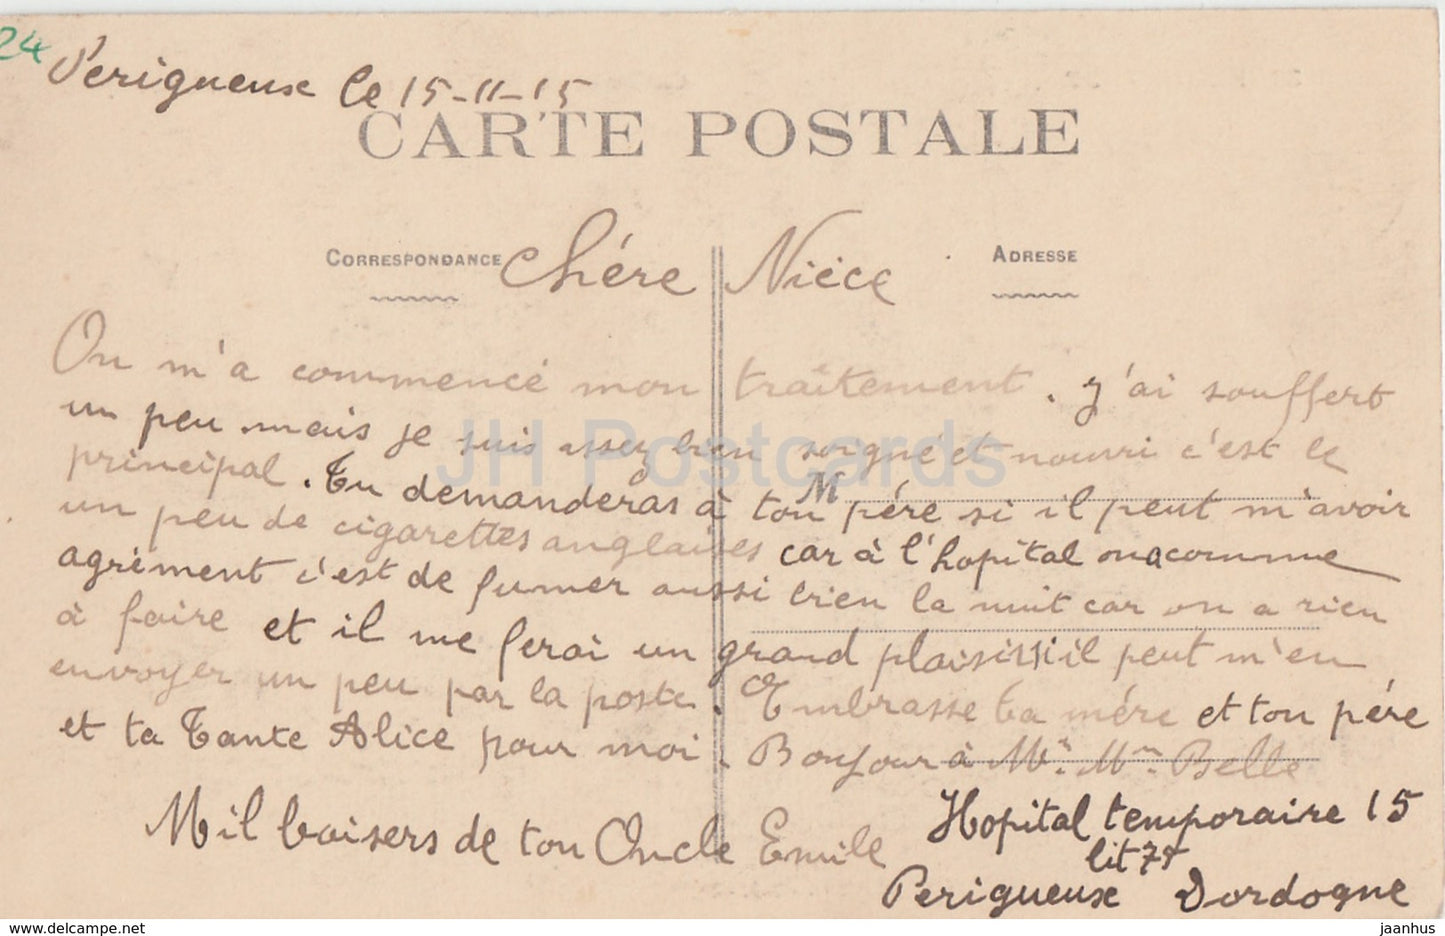 24
Perigueux le 15-11-15
CARTE POSTALE
CORRESPONDANCE
ADRESSE
Chére Niéce
On m'a commencé mon traitement. j'ai souffert
un peu mais je suis assez bien soigné et nourri c'est le
principal. Tu demanderas à ton pére si il peut m'avoir
M
un peu de cigarettes anglaises car à l'hopital on a comme
agrément c'est de fumer aussi bien la nuit car on a rien
à faire et il me ferai un grand plaisir si il peut m'en
envoyer un peu par la poste. Embrasse ta mére et ton pére
et ta Tante Alice pour moi. Bonjour à Mr. Mme. Belle
Mil baisers de ton Oncle Emile
Hopital temporaire 15
lit
Perigueux Dordogne
JH Postcards
www.delcampe.net
jaanhus